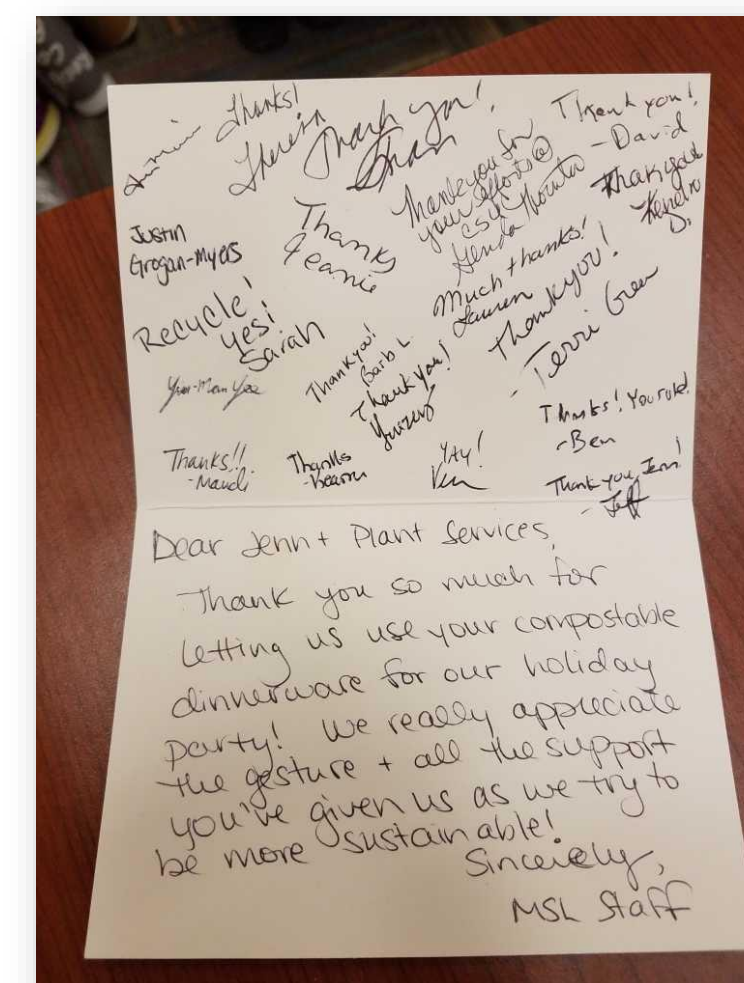 Thanks!
Theresa
Thank you!
Thank you for
your efforts @
CSU
Thank you!
- David
Thank you
Kendra
D.
Justin
Grogan-Myers
Thanks
Jeanie
Much thanks!
Lauren
Thank you!
- Terri Green
Recycle!
Yes!
Sarah
Yin-Man Yee
Thank you!
Barb L
Thank you!
Thanks! You rule!
- Ben
Thanks!!
- Mandi
Thanks
YAY!
Thank you, Jenn!
- Jeff
Dear Jenn + Plant Services,
Thank you so much for
letting us use your compostable
dinnerware for our holiday
party! We really appreciate
the gesture + all the support
you've given us as we try to
be more sustainable!
Sincerely,
MSL Staff